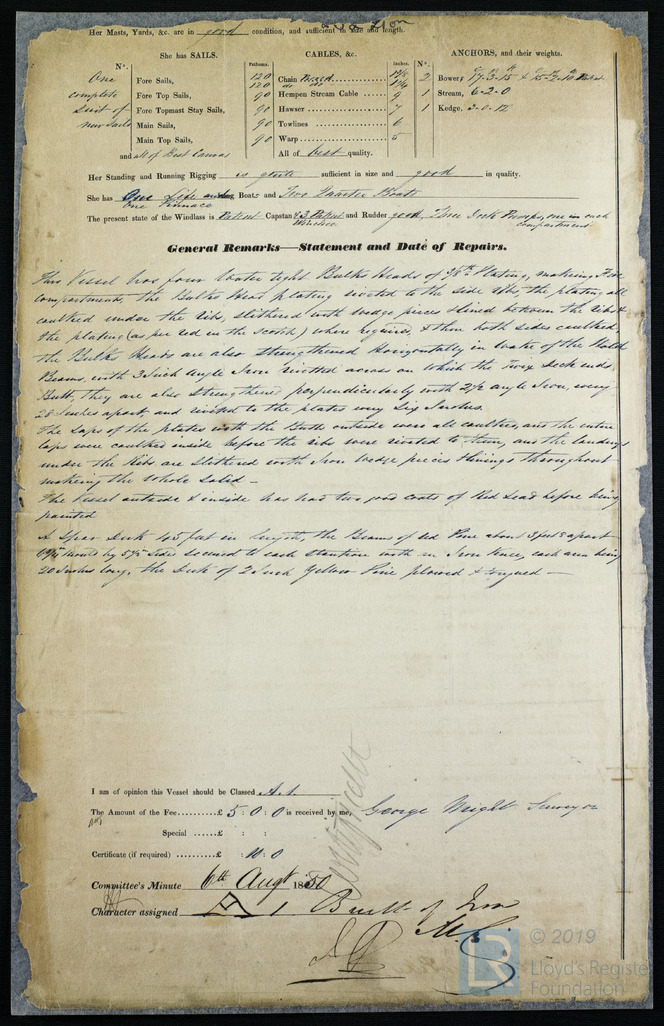 Her Masts, Yards, &c. are in good condition, and sufficient in size and length.
She has SAILS.
CABLES, &c.
ANCHORS, and their weights.
Nº.
Fathoms.
Inches.
Nº.
One complete Suit of new Sails
Fore Sails,
Fore Top Sails,
Fore Topmast Stay Sails,
Main Sails,
Main Top Sails,
and all of Best Canvas
120 Chain Proved
120 do do
90 Hempen Stream Cable 9
90 Hawser 7
90 Towlines 6
90 Warp 5
All of best quality.
2 Bowers, 17-3-15 & 15-2-10
1 Stream, 6-2-0
1 Kedge, 3-0-12
Her Standing and Running Rigging is quite sufficient in size and good in quality.
She has One Life and Boats and Two Quarter Boats
One Pinnace
The present state of the Windlass is Patent Capstan & 3 Patent Winches and Rudder good, Three Deck Pumps, one in each compartment
General Remarks—Statement and Date of Repairs.
This Vessel has four Water tight Bulks Heads of 3/16th Plating, making Five
compartments, the Bulks Head plating riveted to the side ribs, the plating all
caulked under the ribs, slithered with wedge pieces lined between the ribs &
the plating (as per red in the Sketch) where requires, & then both sides caulked,
the Bulks Heads are also strengthened Horizontally in wake of the Hold
Beams, with 3 Inch angle Iron rivetted across on which the Twix Deck ends
Butt, they are also strengthened perpendicularly with 2½ angle Iron, every
28 Inches apart, and rivited to the plates every Six Inches.
The Laps of the plates with the Butts outside were all caulked, and the entire
laps were caulked inside before the ribs were riveted to them, and the landings
under the Ribs are Slithered with Iron wedge pieces linings throughout
making the whole Solid —
The Vessel outside & inside has had two good coats of Red Lead before being
painted
A Spar Deck 45 feet in length, the Beams of Red Pine about 3 feet 8 apart
by 5½ sided secured to each stantion with an Iron knee, each arm being
20 Inches long, the Deck of 2 Inch Yellow Pine plowed & tongued —
I am of opinion this Vessel should be Classed A.1
The Amount of the Fee £ 5 : 0 : 0 is received by me,
George Wright Surveyor
Special £ : :
Certificate (if required) £ : 10 : 0
Certificate
Committee's Minute 6th Augt 1850
Character assigned A 1 Built of Iron
© 2019
LR
Lloyd's Register
Foundation